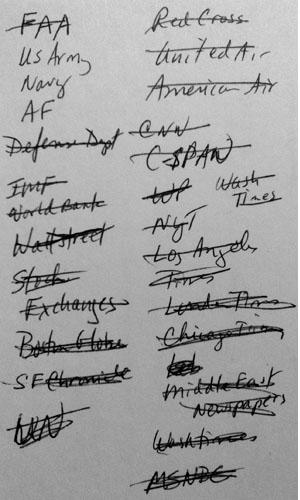 FAA
US Army
Navy
AF
Defense Dept
IMF
World Bank
Wall Street
Stock
Exchanges
Boston Globe
SF Chronicle
UN
Red Cross
United Air
American Air
CNN
C-SPAN
WP Wash
Times
NYT
Los Angeles
Times
London Times
Chicago Times
Middle East
Newspapers
Wash times
MSNBC